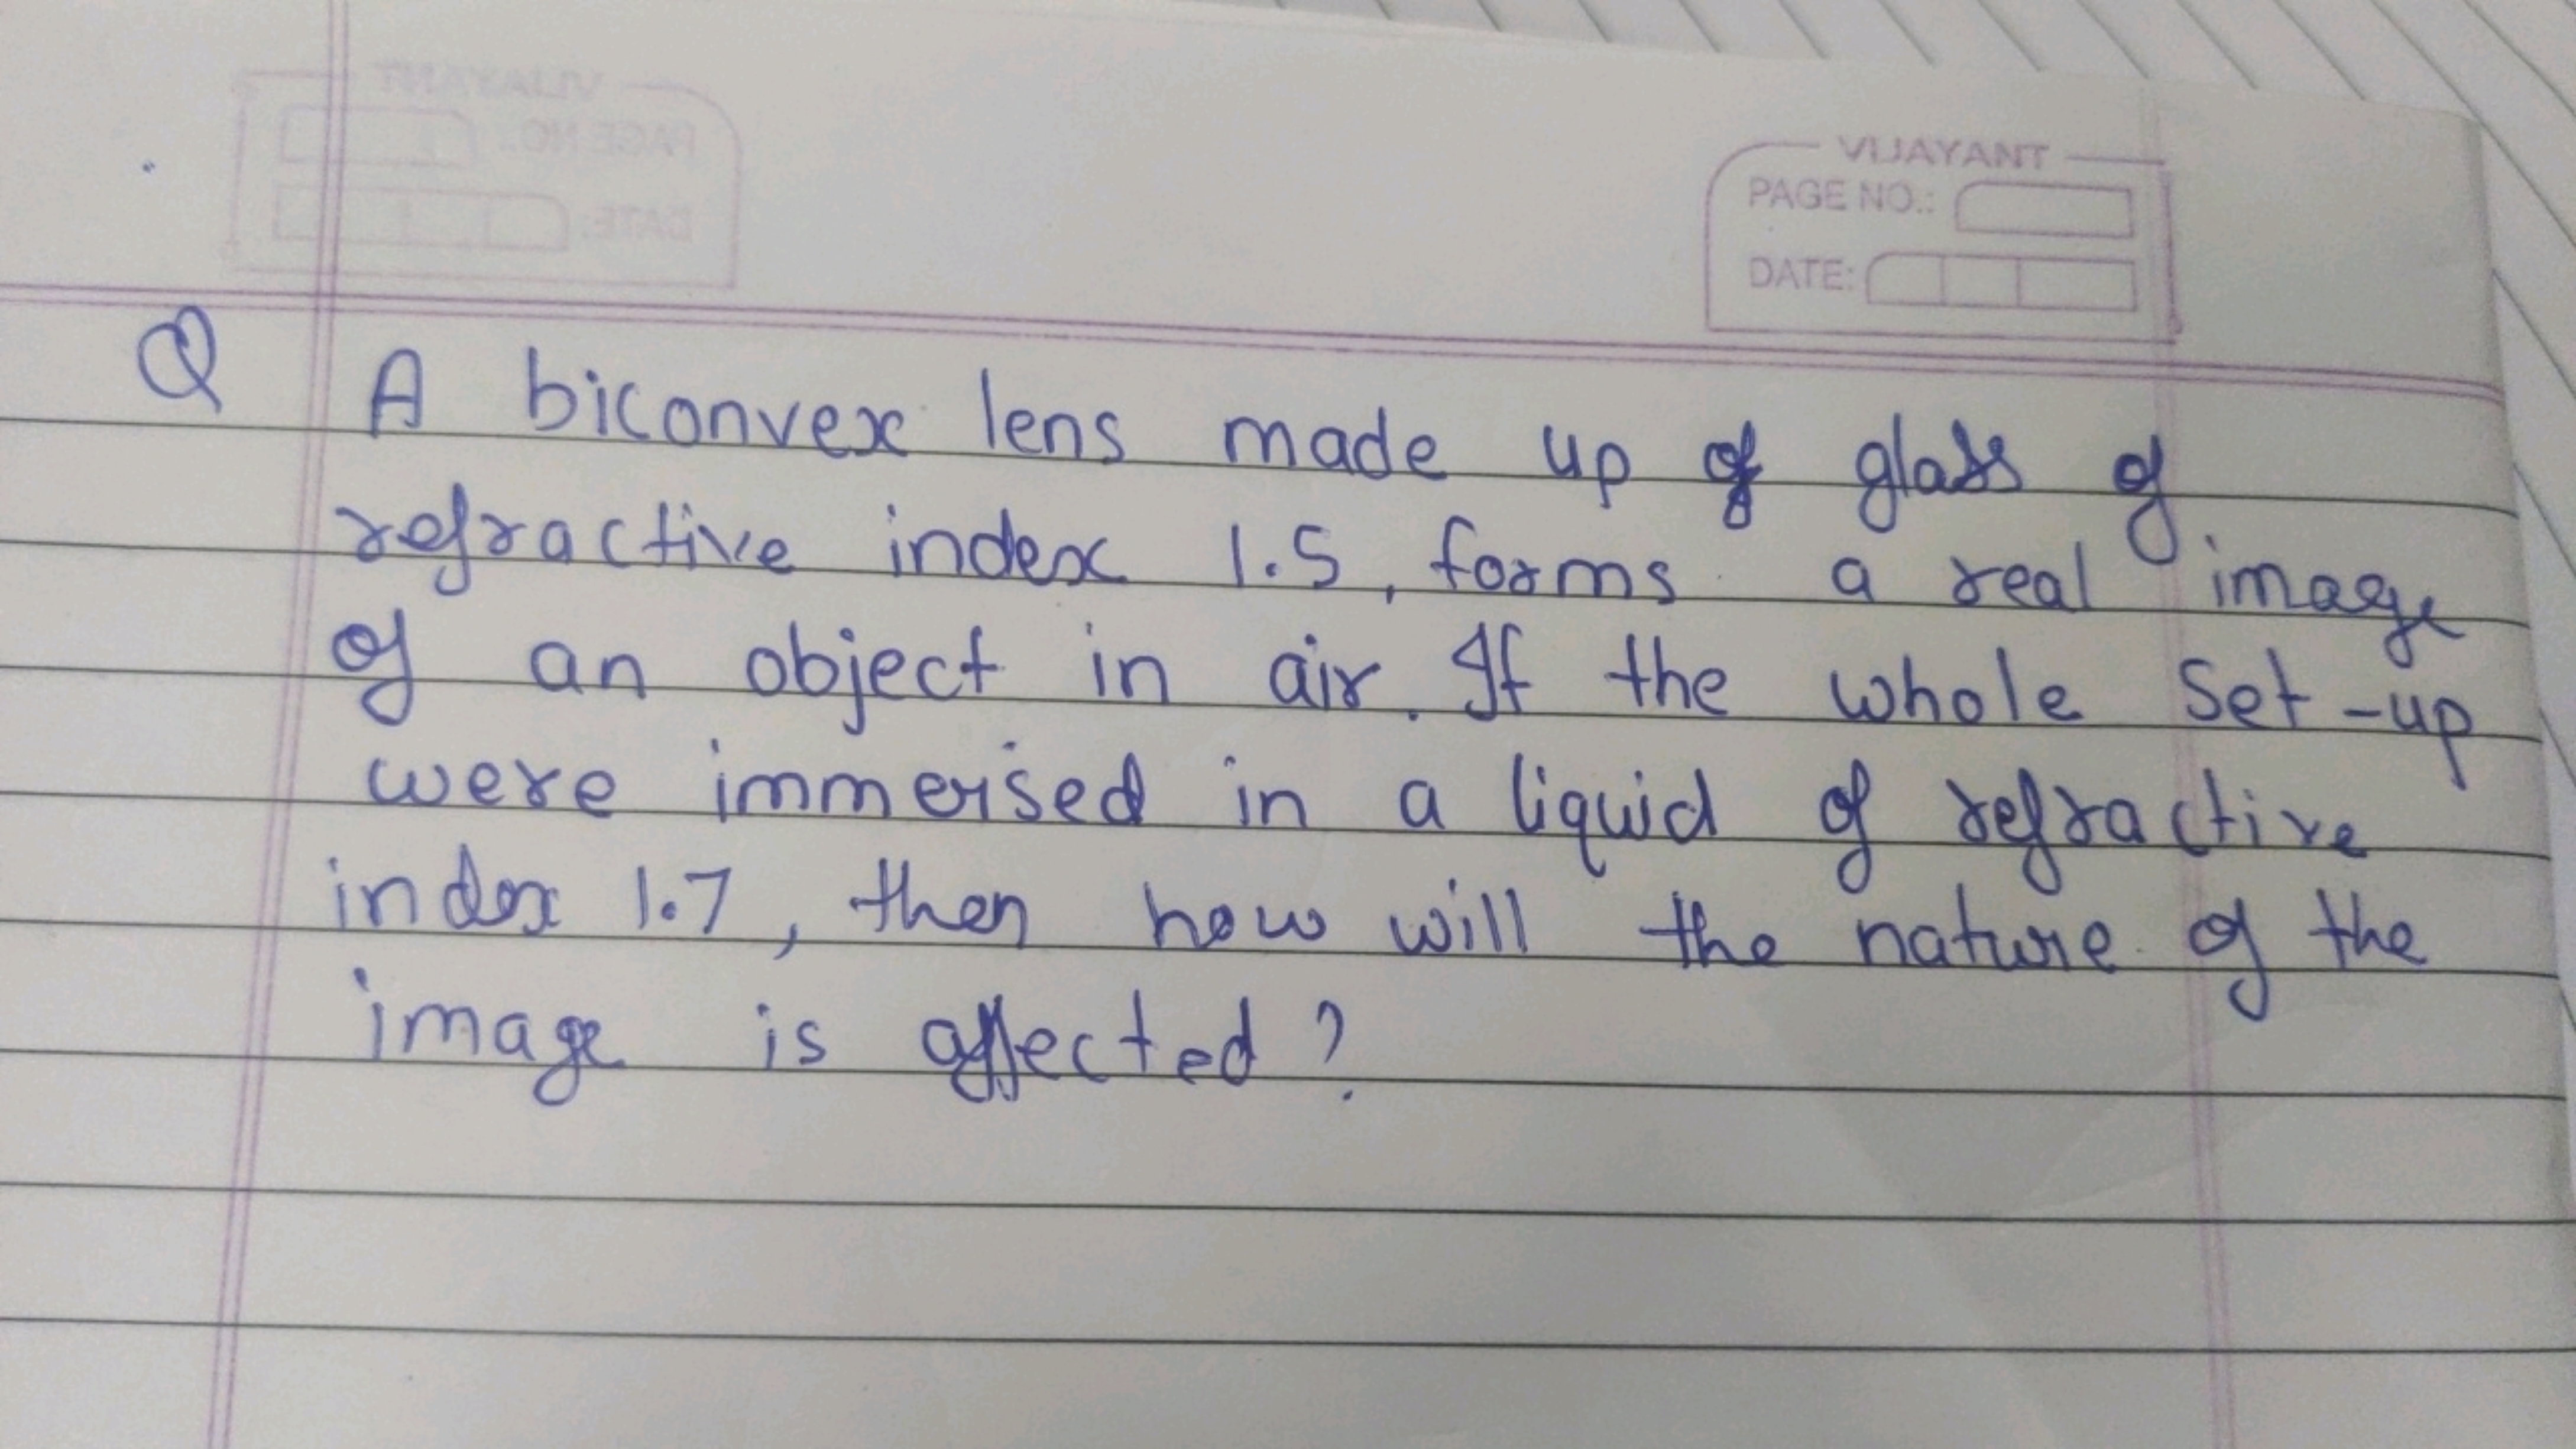 VIJAYANT
PAGE NO.:
DATE:
VIJAYANT
PAGE NO.:
DATE:
Q A biconvex lens made up of glass of
refractive index 1.5, forms a real image
of an object in air. If the whole set-up
were immersed in a liquid of refractive
index 1.7, then how will the nature of the
image is affected?